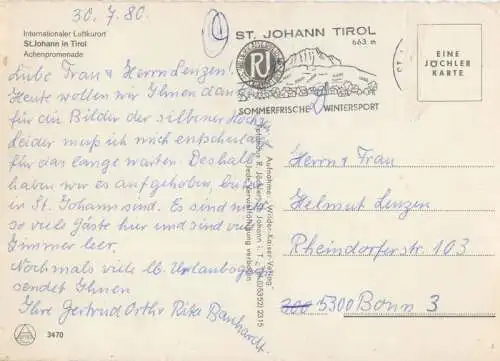 30. 7. 80.
Internationaler Luftkurort
St.Johann in Tirol
Achenpromenade
ST. JOHANN TIROL
663 m
RJ
SOMMERFRISCHE WINTERSPORT
EINE
JÖCHLER
KARTE
Liebe Frau & Herrn Lenzen!
Heute wollen wir Ihnen danken
für die Bilder der silbernen Hochz.
Leider muß ich mich entschuld.
für das lange warten. Deshalb
haben wir es aufgehoben, bis
in St. Johann sind. Es sind nicht
so viele Gäste hier und sind viele
Zimmer leer.
Nochmals viele lb. Urlaubsgrüße
sendet Ihnen
Ihre Gertrud Orthr Rita Banhardt.
Aufnahme: „Wilder-Kaiser-Verlag"
R. Jöchler, St. Johann i. T., (0 53 52) 2315
Jede Vervielfältigung verboten
Herrn & Frau
Helmut Lenzen
Rheindorferstr. 103
5300 Bonn 3
3470